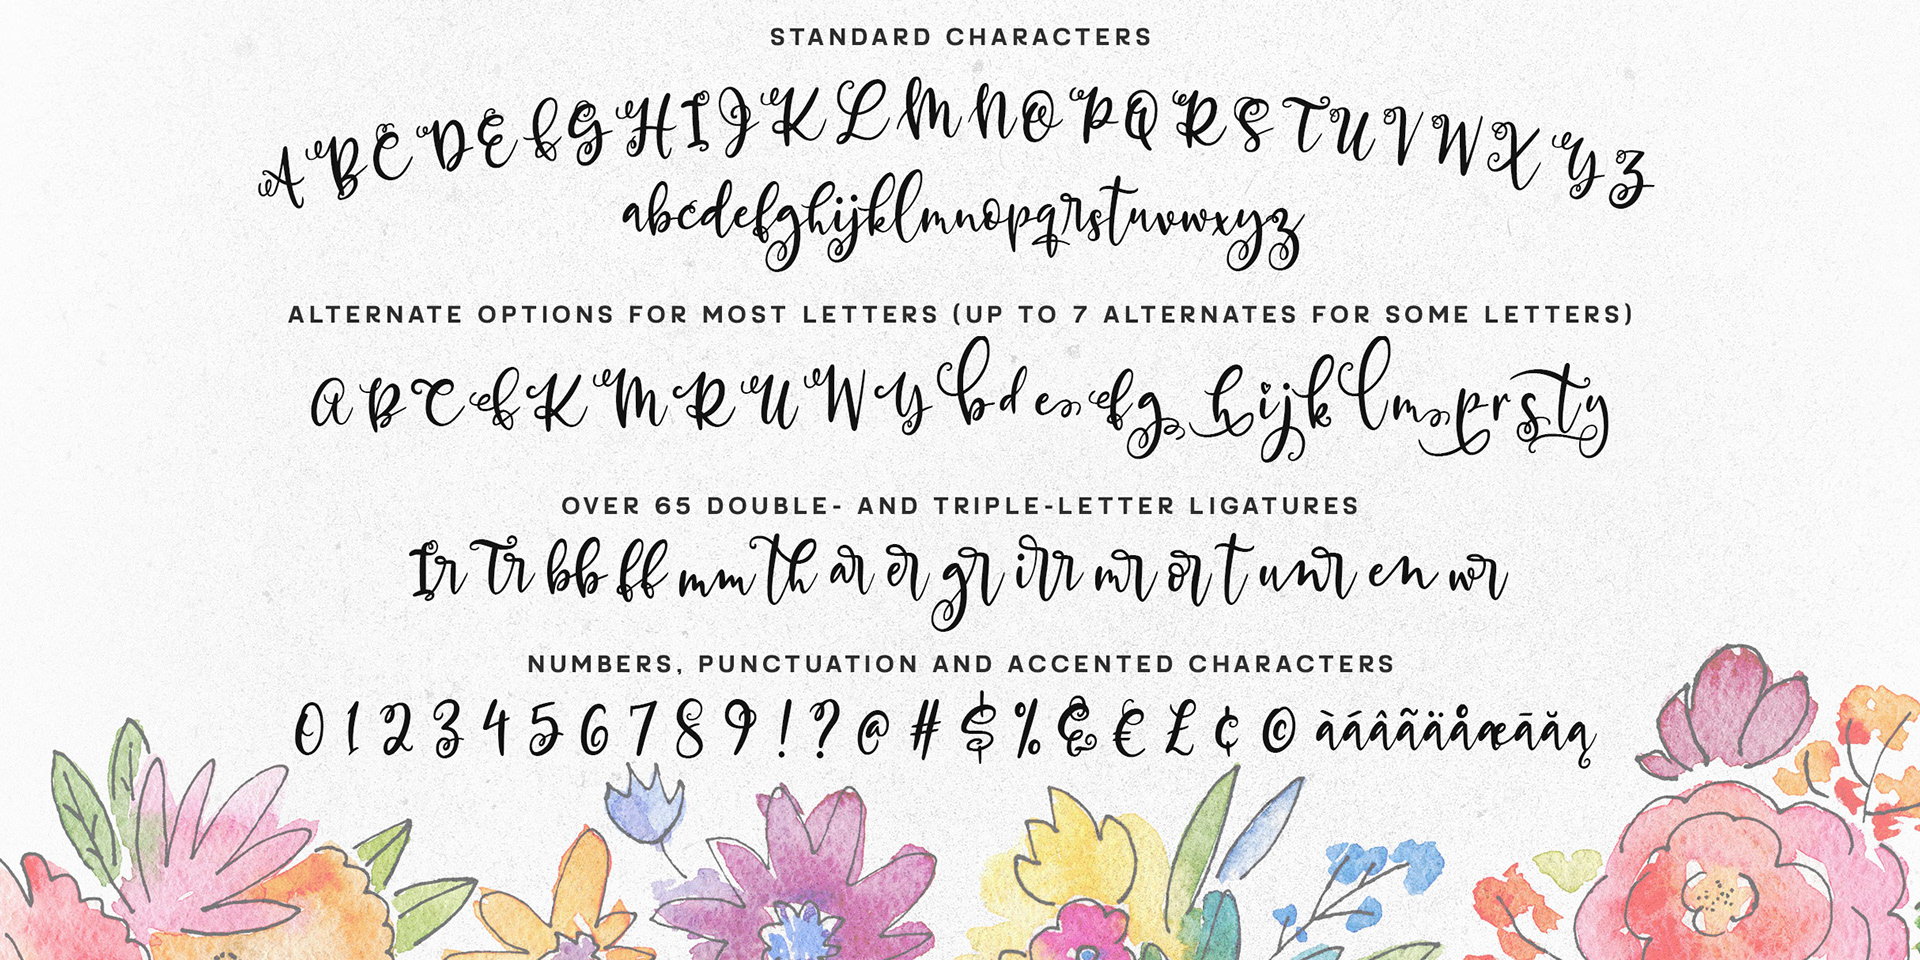 STANDARD CHARACTERS
A B C D E F G H I J K L M N O P Q R S T U V W X Y Z
abcdefghijklmnopqrstuvwxyz
ALTERNATE OPTIONS FOR MOST LETTERS (UP TO 7 ALTERNATES FOR SOME LETTERS)
A B C F K M R U W Y b d e f g h i j k l m p r s t y
OVER 65 DOUBLE- AND TRIPLE-LETTER LIGATURES
Ir Tr bb ff mm th ar er gr irr mr or t un r en wr
NUMBERS, PUNCTUATION AND ACCENTED CHARACTERS
0 1 2 3 4 5 6 7 8 9 ! ? @ # $ % & € £ ¢ © àáâãäåæāăą